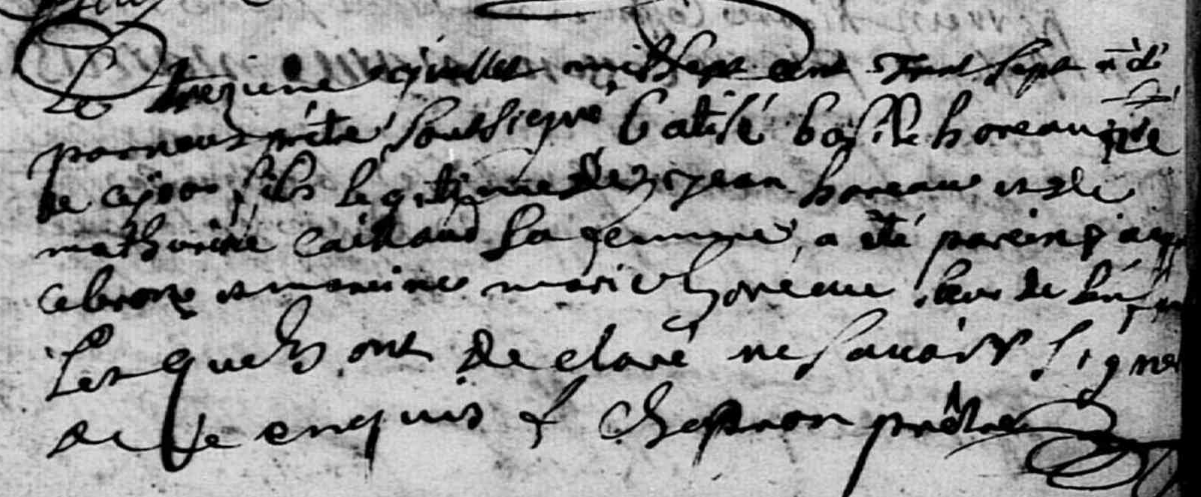 Le trezieme juillet mil sept cent trent sept a été
par nous prêtre soussigné batisé basile horeau née
de ce jour fils legitime de jean horeau et de
mathurine caillaud sa femme, a été parein
et mareine marie horeau seur de l'enfan
lesquels ont declaré ne savoir signer
de ce enquis f Chesseron prêtre